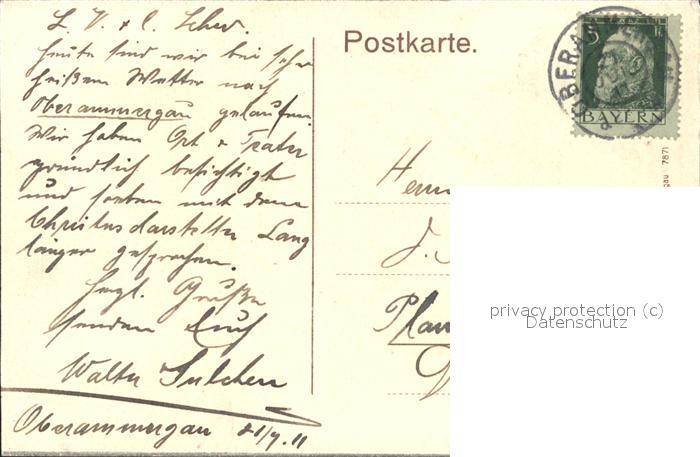 L. V. & l. Schw.
Heute sind wir bei sehr
heißem Wetter nach
Oberammergau gelaufen.
Wir haben Ort & Teater
gründlich besichtigt
und soeben mit dem
Christusdarsteller Lang
länger gesprochen.
Herzl. Grüße
senden Euch
Walter
Oberammergau 21/7. 11
Postkarte.
5
BAYERN
OBERAM
gau 7871
Herrn
J.
Plau
privacy protection (c)
Datenschutz